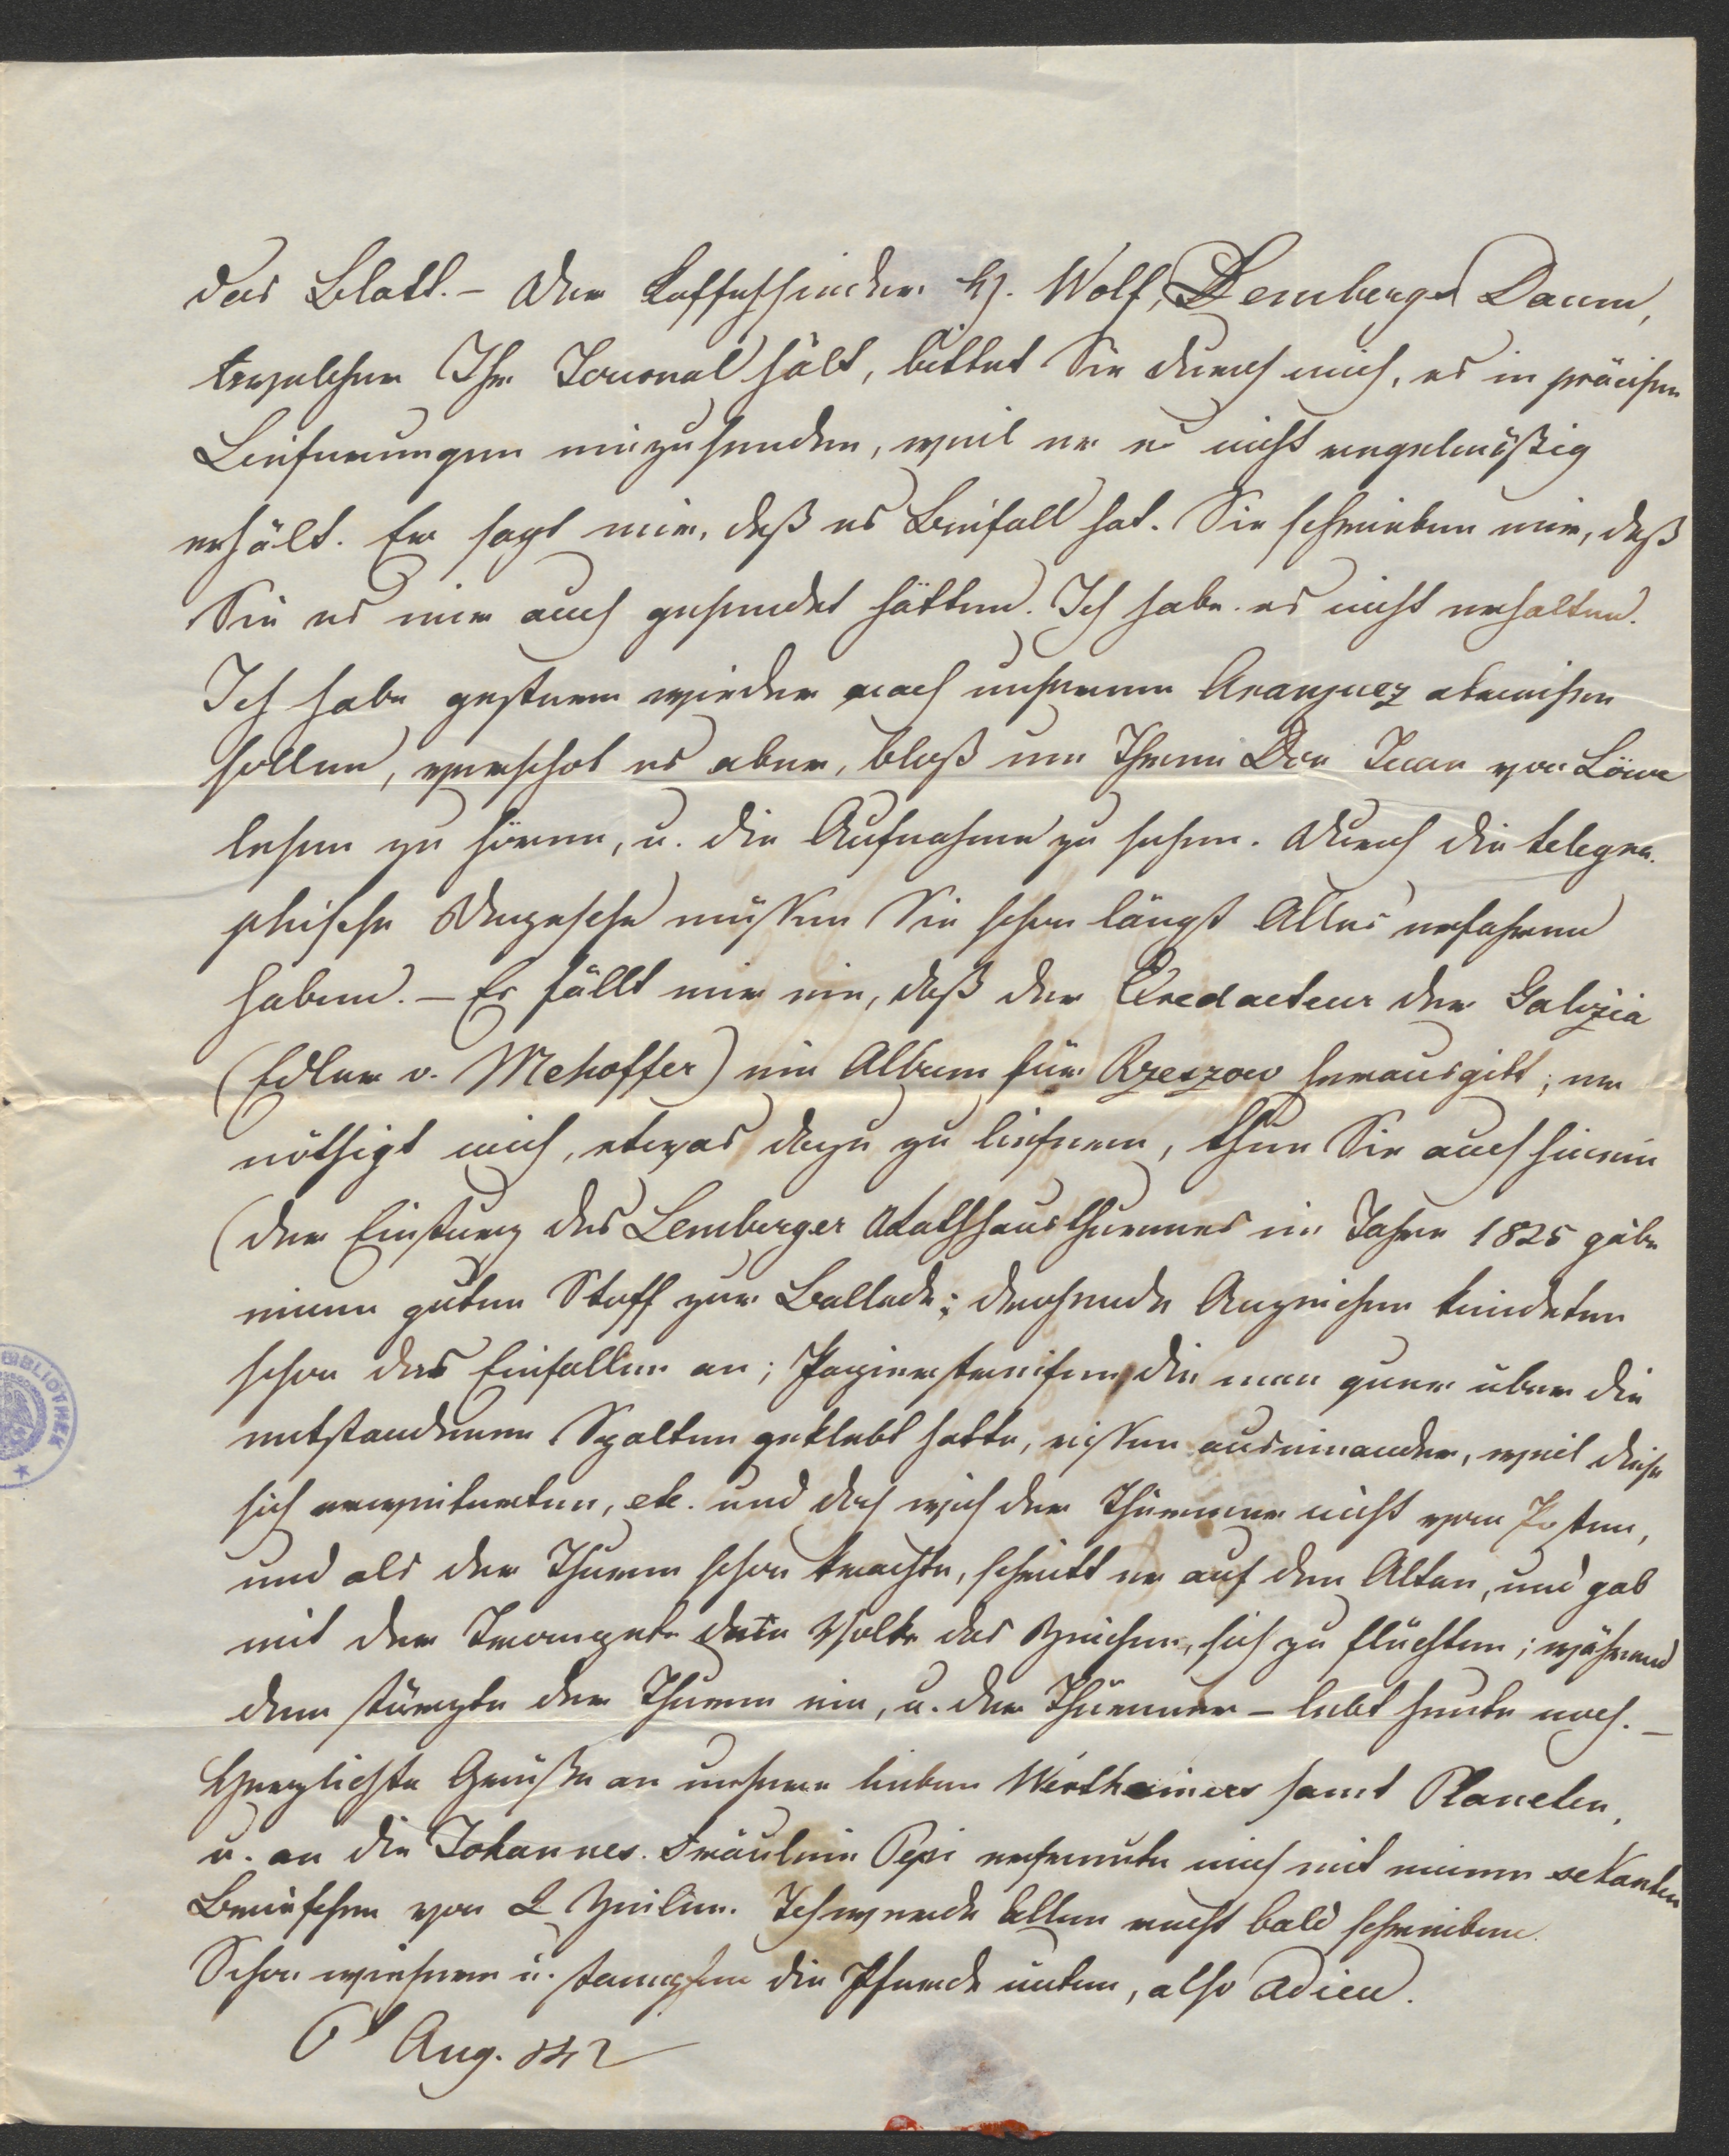 das Blatt. – Der Kaffehsieder H. Wolf, Lemberger Daum,
welcher Ihr Journal hält, bittet Sie durch mich, es in präcisen
Lieferungen einzusenden, weil er es nicht regelmäßig
erhält. Er sagt mir, daß es Beifall hat. Sie schrieben mir, daß
Sie es mir auch gesendet hätten. Ich habe es nicht erhalten.
Ich habe gestern wieder nach unserem Aranjuez abreisen
sollen, verschob es aber, bloß um Ihren Don Juan von Löwe
lesen zu hören, u. die Aufnahme zu sehen. Durch die telegra-
phische Depesche müssen Sie schon längst Alles erfahren
haben. – Es fällt mir ein, daß der Redacteur der Galizia
(Edler v. Mehoffer) ein Album für Rzeszow herausgibt; er
nöthigt mich, etwas dazu zu liefern, thun Sie auch hinein
(der Einsturz des Lemberger Rathhausthurmes im Jahre 1825 gäbe
einen guten Stoff zur Ballade; drohende Anzeichen kündeten
schon das Einfallen an; Papierstreifen, die man quer über die
entstandenen Spalten geklebt hatte, rissen auseinander, weil diese
sich erweiterten, etc. und doch wich der Thürmer nicht vom Posten,
und als der Thurm schon krachte, schritt er auf den Altan, und gab
mit der Trompete dem Volke das Zeichen, sich zu flüchten; während
dem stürzte der Thurm ein, u. der Thürmer – lebt heute noch. –
Herzlichste Grüße an unsere lieben Wertheimers samt Planeten,
u. an die Johannes. Fräulein Pepi erfreute mich mit einem sekanten
Briefchen von 2 Zeilen. Ich werde Allen recht bald schreiben.
Schon wiehern u. stampfen die Pferde unten, also Adieu.
6t Aug. 842
BIBLIOTHEK